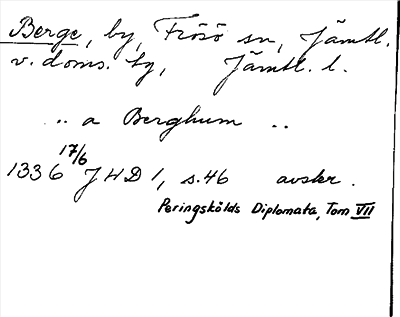 Berge, by, Frösö sn, Jämtl.
v. doms. tg, Jämtl. l.
.. a Berghum ..
1336 17/6 JHD 1, s. 46 avskr.
Peringskölds Diplomata, Tom VII